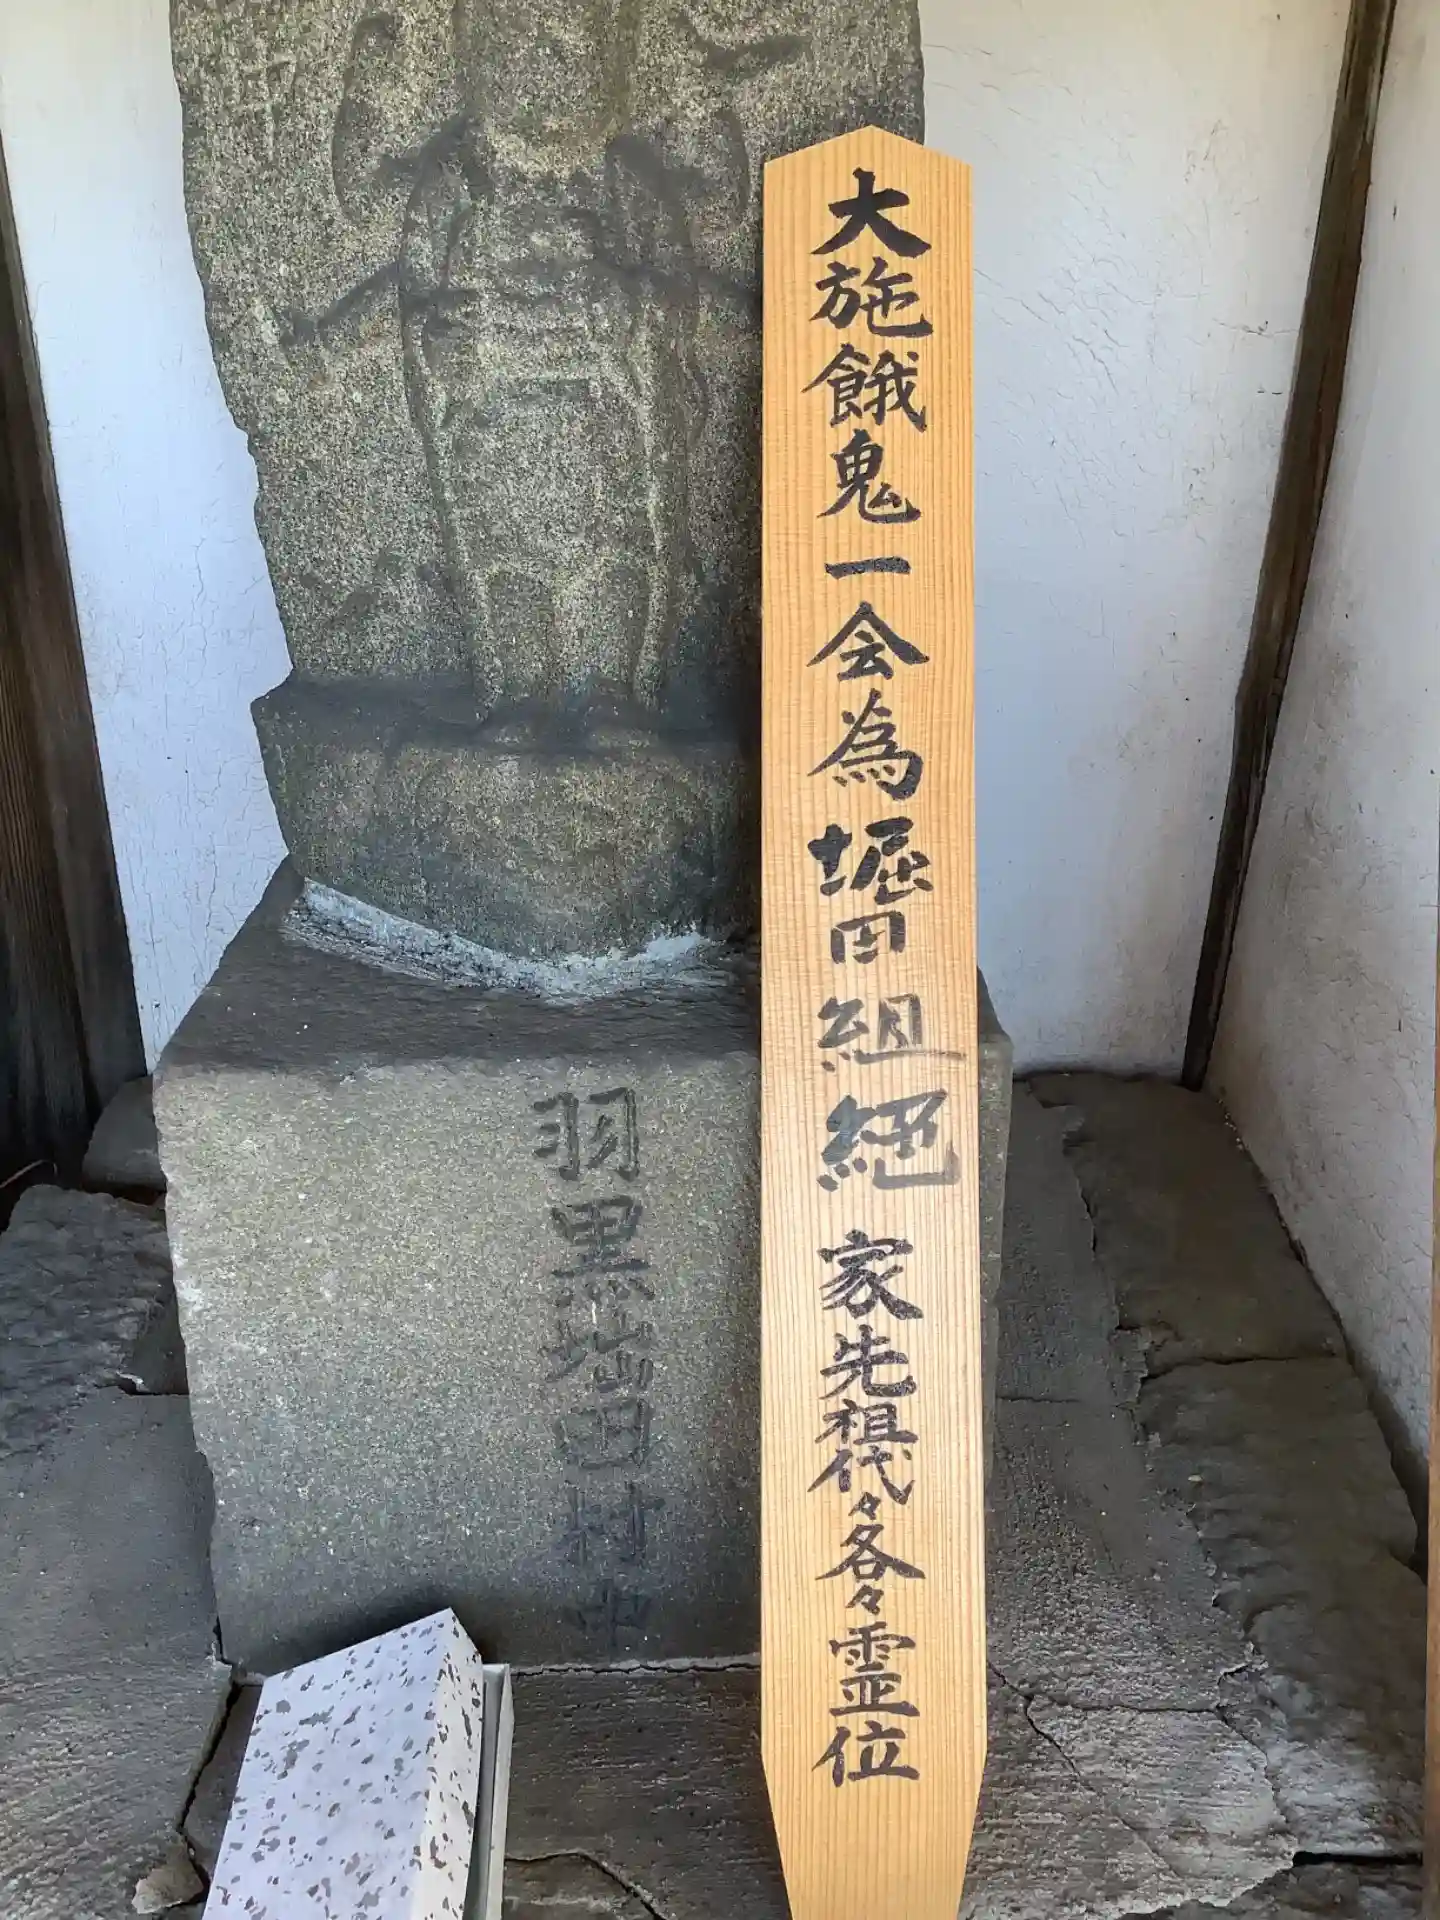 大施餓鬼一会為堀田組絶家先祖代々各々霊位
羽黒堀田村中